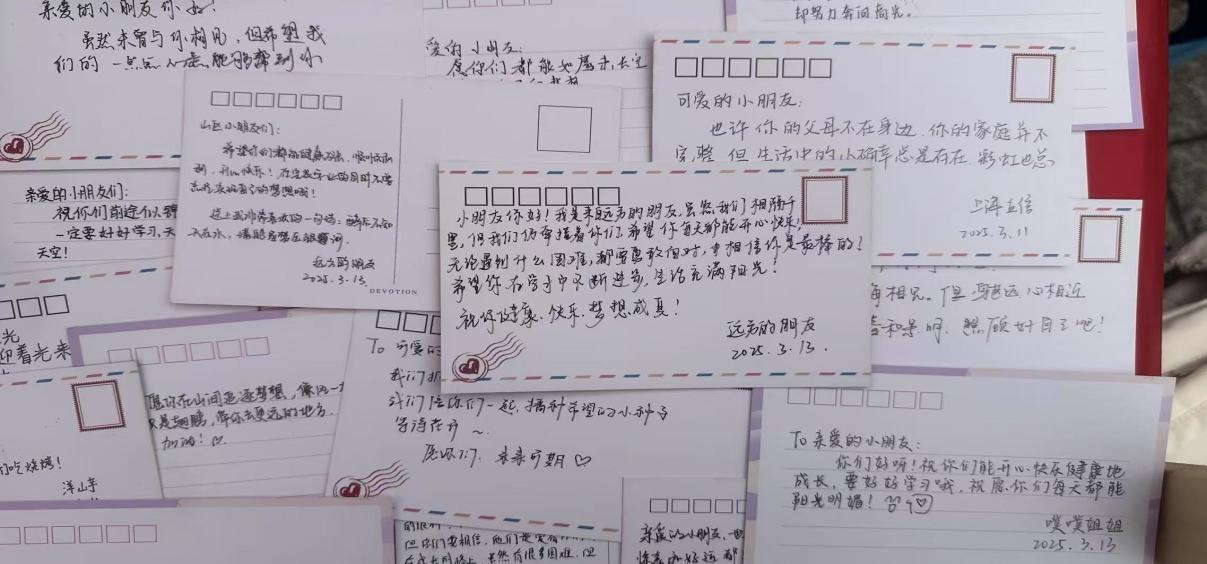 亲爱的小朋友你好!
虽然未曾与你相见,但希望我
们的一点点心意能够帮到你
爱的小朋友:
愿你们都能如
却努力奔向阳光。
可爱的小朋友:
也许你的父母不在身边,你的家庭并不
完整,但生活中的小确幸总是存在,彩虹也总
上海立信
2025.3.11
山区小朋友们:
希望你们都能健康
利,开心快乐!在完成学业的同时不要
忘记
送上我非常喜欢的一句诗:醉后不知
天在水,满船清梦压星河。
远方的朋友
2025.3.13
DEVOTION
亲爱的小朋友们:
祝你们前途似锦
一定要好好学习,天
天空!
小朋友你好!我是来自远方的朋友,虽然我们相隔千
里,但我们仍牵挂着你们,希望你每天都能开心快乐!
无论遇到什么困难,都要勇敢面对,并相信你是最棒的!
希望你在学习中不断进步,生活充满阳光!
祝你健康、快乐、梦想成真!
远方的朋友
2025.3.13.
海相见。但
远心相近
春和景明,照顾好自己吧!
光
迎着光来
愿你在山间追逐梦想,像
翅膀,带你去更远的地方。
加油!
To 可爱的
我们
我们陪你们一起,播种希望的小种子
等待花开~
愿你们,未来可期♡
们吃烧烤!
To 亲爱的小朋友:
你们好呀!祝你们能开心快乐健康地
成长,要好好学习哦,祝愿你们每天都能
阳光明媚!
噗噗姐姐
2025.3.13
但你们要相信,他们是爱着你们
虽然有很多困难,但
亲爱的小朋友,